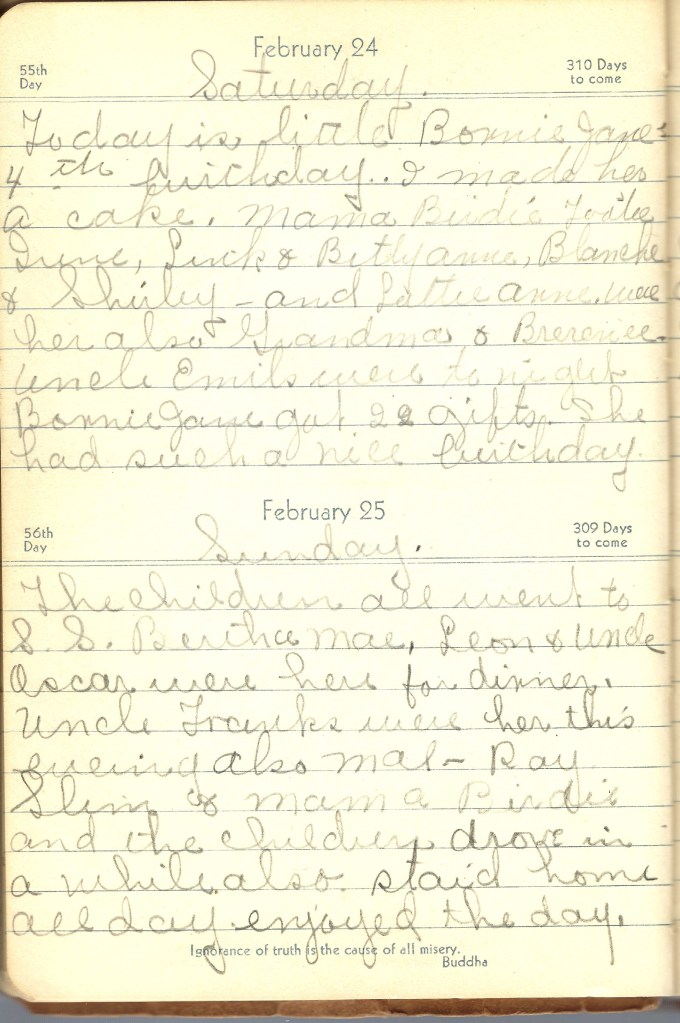 February 24
55th
Day
310 Days
to come
Saturday.
Today is little Bonnie Jane's
4th birthday.. I made her
a cake. Mama Birdie
Irene, Luck & Bettyanne, Blanche
& Shirley - and Lottie anne, were
her also Grandma &
Uncle Emils were to night
Bonnie Jane got 22 gifts. She
had such a nice birthday.
February 25
56th
Day
309 Days
to come
Sunday.
The children all went to
S. S. Bertha Mae, Leon & Uncle
Oscar were here for dinner.
Uncle Franks were her this
evening also Mal - Ray
Slim & Mama Birdie
and the children drove in
a while also. staid home
all day enjoyed the day.
Ignorance of truth is the cause of all misery.
Buddha